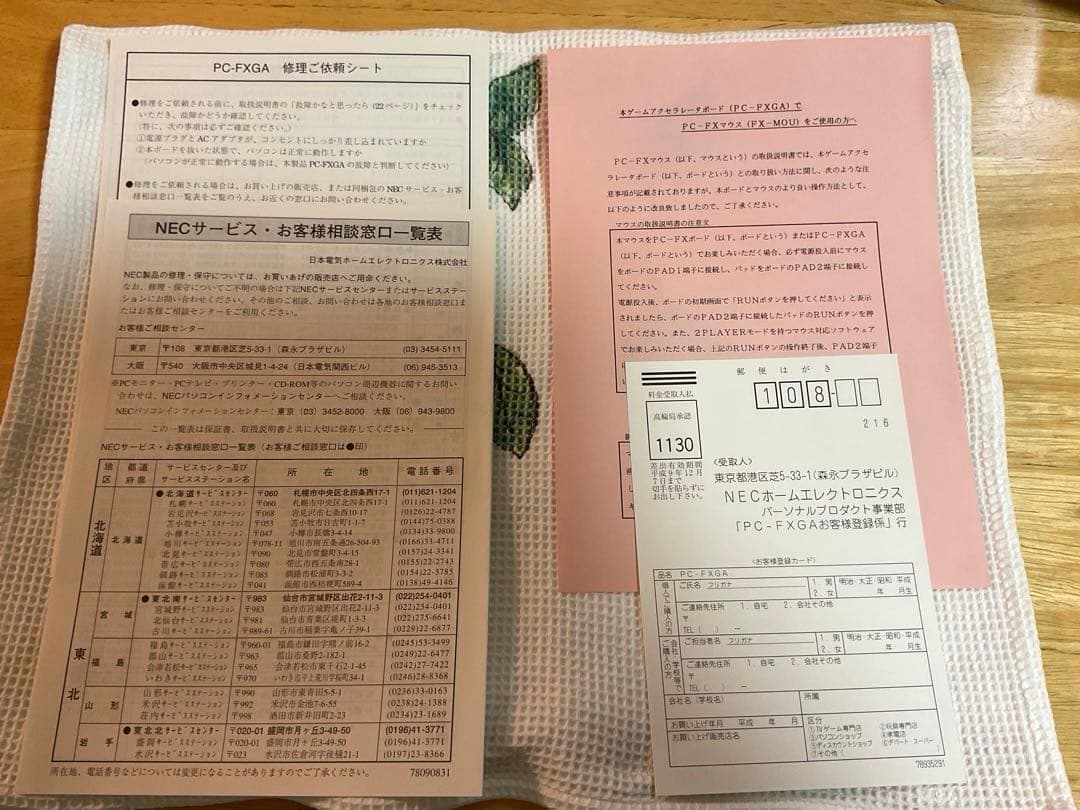 PC-FXGA 修理ご依頼シート
●修理をご依頼される前に、取扱説明書の「故障かなと思ったら(22ページ)」をチェック
いただき、故障かどうか確認してください。
(特に、次の事項は必ずご確認ください。)
①電源プラグとACアダプタが、コンセントにしっかり差し込まれていますか
②本ボードを抜いた状態で、パソコンは正常に動作しますか
(パソコンが正常に動作する場合は、本製品PC-FXGAの故障と判断してください)
●修理をご依頼される場合は、お買い上げの販売店、または同梱包のNECサービス・お客
様相談窓口一覧表をご覧のうえ、お近くの窓口にお問い合わせください。
NECサービス・お客様相談窓口一覧表
日本電気ホームエレクトロニクス株式会社
NEC製品の修理・保守については、お買いあげの販売店へご用命ください。
なお、修理・保守についてご不明の場合は下記NECサービスセンターまたはサービスステー
ションにお問い合わせください。その他のご相談、お問い合わせは各地のお客様相談窓口ま
たはお客様ご相談センターをご利用ください。
お客様ご相談センター
東京 〒108 東京都港区芝5-33-1(森永プラザビル) (03) 3454-5111
大阪 〒540 大阪市中央区城見1-4-24(日本電気関西ビル) (06) 945-3513
※PCモニター・PCテレビ・プリンター・CD-ROM等のパソコン周辺機器に関するお問い
合わせは、NECパソコンインフォメーションセンターへご相談ください。
NECパソコンインフォメーションセンター:東京(03)3452-8000 大阪(06)943-9800
この一覧表は保証書、取扱説明書と共に大切に保存してください。
NECサービス・お客様相談窓口一覧表(お客様ご相談窓口は●印)
地区 都道府県 サービスセンター及びサービスステーション名 所在地 電話番号
北海道 北海道 ●北海道サービスセンター 〒060 札幌市中央区北四条西17-1 (011)621-1204
札幌サービスステーション 〒060 札幌市中央区北四条西17-1 (011)621-1204
岩見沢サービスステーション 〒068 岩見沢市七条西10-17 (0126)22-4787
苫小牧サービスステーション 〒053 苫小牧市日吉町1-1-7 (0144)75-0388
小樽サービスステーション 〒047 小樽市長橋3-4-14 (0134)33-9800
旭川サービスステーション 〒078-11 旭川市南五条通26-504-93 (0166)33-4711
北見サービスステーション 〒090 北見市常盤町3-4-15 (0157)24-3341
帯広サービスステーション 〒080 帯広市西五条南28-1 (0155)22-2743
釧路サービスステーション 〒085 釧路市松浦町3-3-2 (0154)22-5785
函館サービスステーション 〒041 函館市西桔梗町589-4 (0138)49-4146
東北 宮城 ●東北南サービスセンター 〒983 仙台市宮城野区出花2-11-3 (022)254-0401
宮城野サービスステーション 〒983 仙台市宮城野区出花2-11-3 (022)254-0401
北仙台サービスステーション 〒981 仙台市青葉区堤町1-3-3 (022)275-6641
古川サービスステーション 〒989-61 古川市稲葉字亀ノ子39-1 (0229)22-6877
福島 福島サービスステーション 〒960-01 福島市鎌田字原ノ前16-2 (0245)53-3499
郡山サービスステーション 〒963 郡山市桑野2-182-1 (0249)22-6477
会津若松サービスステーション 〒965 会津若松市東千石2-1-45 (0242)27-7422
いわきサービスステーション 〒970 いわき市平上荒川字桜町34-1 (0246)28-8368
山形 山形サービスステーション 〒990 山形市東青田5-5-1 (0236)33-0163
米沢サービスステーション 〒992 米沢市金池7-6-55 (0238)24-1388
荘内サービスステーション 〒998 酒田市新井田町2-23 (0234)23-1689
岩手 ●東北北サービスセンター 〒020-01 盛岡市月ヶ丘3-49-50 (0196)41-3771
盛岡サービスステーション 〒020-01 盛岡市月ヶ丘3-49-50 (0196)41-3771
水沢サービスステーション 〒023 水沢市佐倉河字後樋21-1 (0197)23-8366
所在地、電話番号などについては変更になることがありますのでご了承ください。
78090831
本ゲームアクセラレータボード(PC-FXGA)で
PC-FXマウス(FX-MOU)をご使用の方へ
PC-FXマウス(以下、マウスという)の取扱説明書では、本ゲームアクセ
ラレータボード(以下、ボードという)との取り扱い方法に関し、次のような
注意事項が記載されておりますが、本ボードとマウスのより良い操作方法として、
以下のように改良致しましたので、ご了承ください。
マウスの取扱説明書の注意文
本マウスをPC-FXボード(以下、ボードという)またはPC-FXGA
でお楽しみいただく場合、必ず電源投入前にマウス
をボードのPAD1端子に接続し、パッドをボードのPAD2端子に接続し
てください。
電源投入後、ボードの初期画面で「RUNボタンを押してください」と表示
されましたら、ボードのPAD2端子に接続したパッドのRUNボタンを押
してください。また、2PLAYERモードを持つマウス対応ソフトウェア
でお楽しみいただく場合、上記のRUNボタンの操作終了後、PAD2端子
郵便はがき
108-
216
料金受取人払
高輪局承認
1130
差出有効期間
平成9年12月
7日まで
切手を貼らずに
お出し下さい。
〈受取人〉
東京都港区芝5-33-1(森永プラザビル)
NECホームエレクトロニクス
パーソナルプロダクト事業部
「PC-FXGAお客様登録係」行
〈お客様登録カード〉
品名 PC-FXGA
個人でご購入の方
ご氏名 フリガナ 1. 男 2. 女 明治・大正・昭和・平成 年 月生
ご連絡先住所 1. 自宅 2. 会社その他
〒
TEL ( ) ー
会社・学校等でご購入の方
ご担当者名 フリガナ 1. 男 2. 女 明治・大正・昭和・平成 年 月生
ご連絡先住所 1. 自宅 2. 会社その他
〒
TEL ( ) ー
会社名(学校名) 所属
お買い上げ年月 平成 年 月
お買い上げ販売店名
区分
①TVゲーム専門店 ②玩具専門店
③パソコンショップ ④家電店
⑤ディスカウントショップ ⑥デパート・スーパー
⑦その他( )
78935291